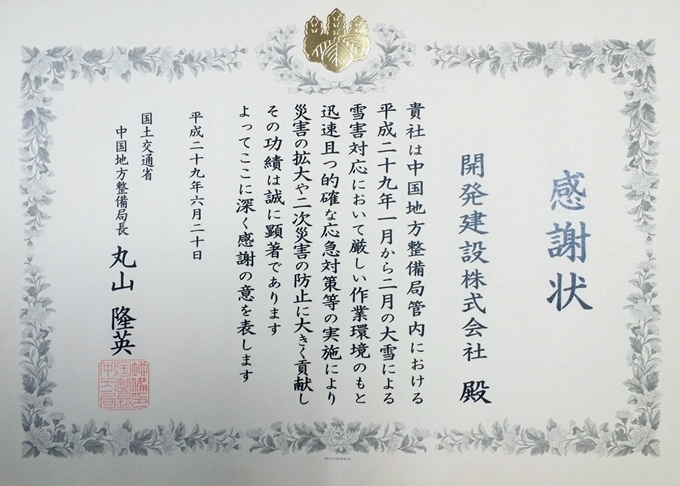 感謝状
開発建設株式会社 殿
貴社は中国地方整備局管内における
平成二十九年一月から二月の大雪による
雪害対応において厳しい作業環境のもと
迅速且つ的確な応急対策等の実施により
災害の拡大や二次災害の防止に大きく貢献し
その功績は誠に顕著であります
よってここに深く感謝の意を表します
平成二十九年六月二十日
国土交通省
中国地方整備局長 丸山 隆英